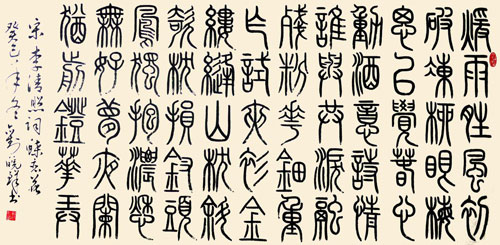 煖雨晴風初
破凍柳眼梅
腮已覺春心
動酒意詩情
誰與共淚融
殘粉華鈿重
乍試夾衫金
縷縫山枕斜
欹枕損釵頭
鳳獨抱濃愁
無好夢夜闌
猶剪鐙華弄
宋李清照詞蝶戀花
癸巳年冬劉曉書